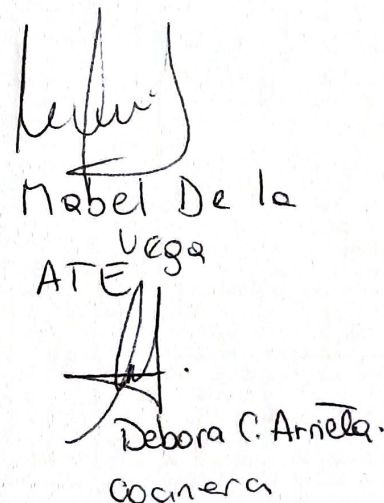 Mabel De la
Vega
ATE
Debora C. Arrieta.
Cocinera